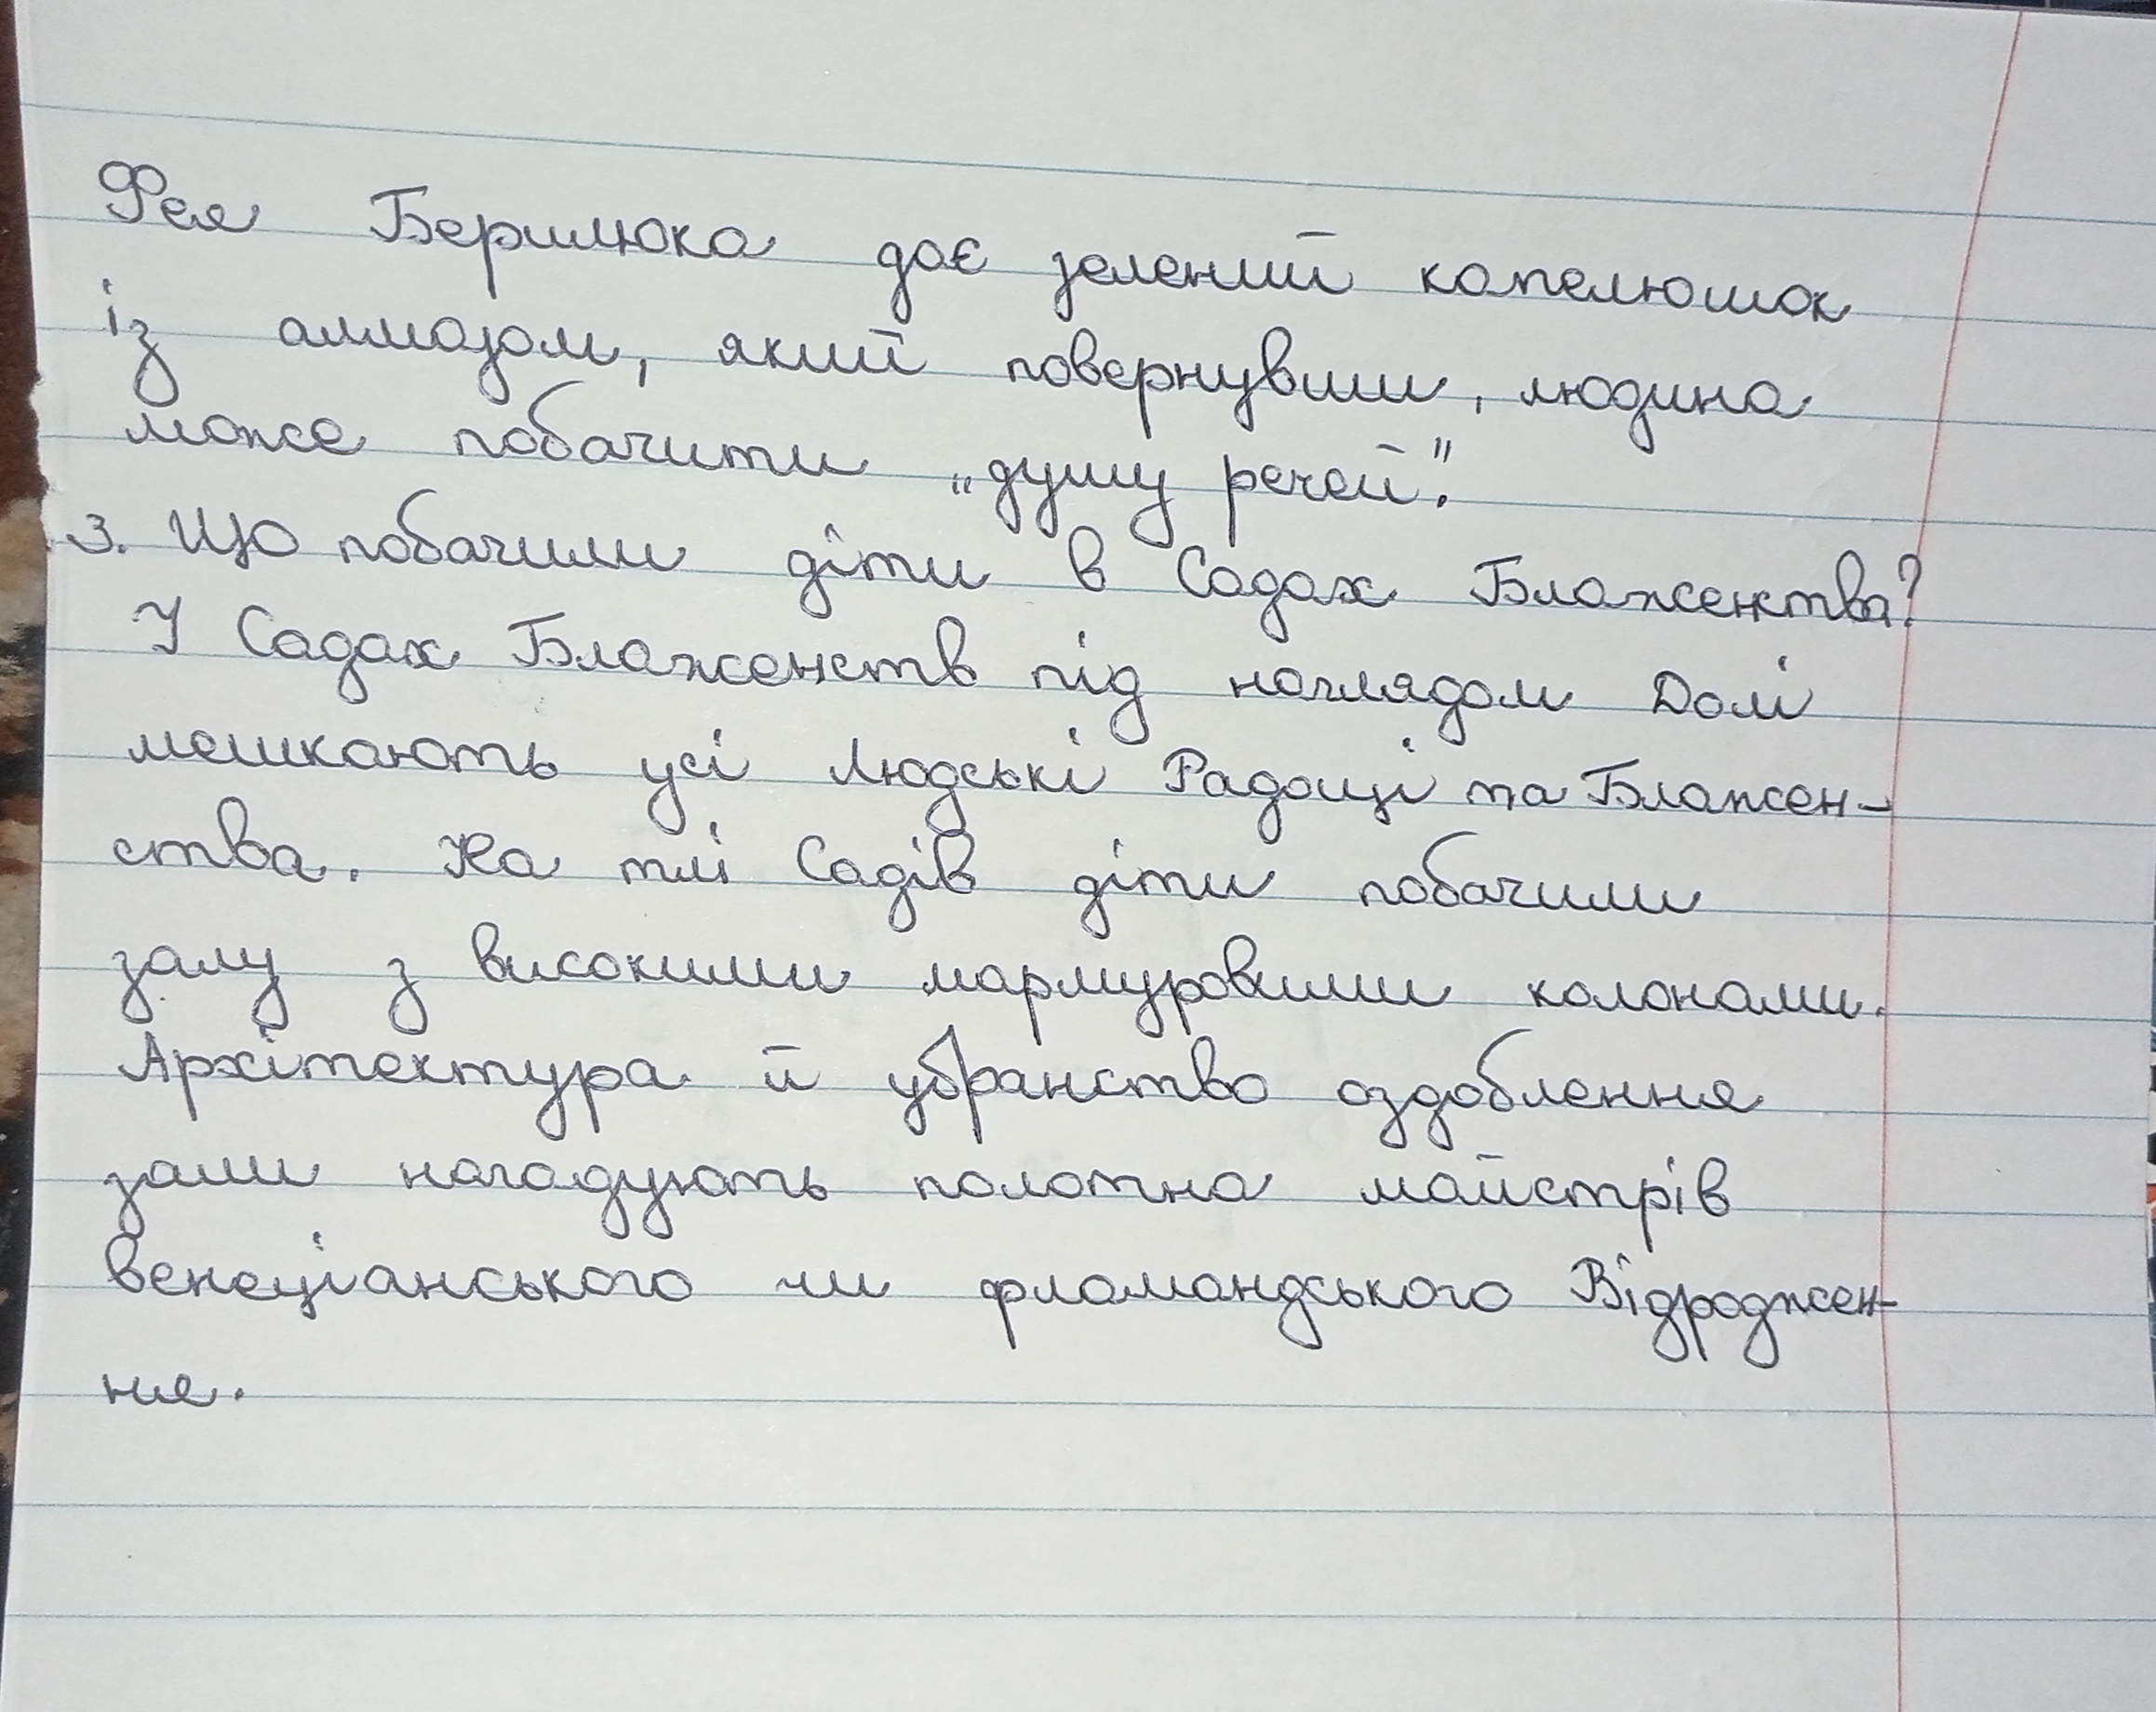 Фея Берилюка дає зелений капелюшок
із алмазом, який повернувши, людина
може побачити „душу речей".
3. Що побачили діти в Садах Блаженства?
У Садах Блаженств під наглядом Долі
мешкають усі Людські Радощі та Блажен-
ства. На тлі Садів діти побачили
залу з високими мармуровими колонами.
Архітектура й убранство оздоблення
зали нагадують полотна майстрів
венеціанського чи фламандського Відроджен-
ня.